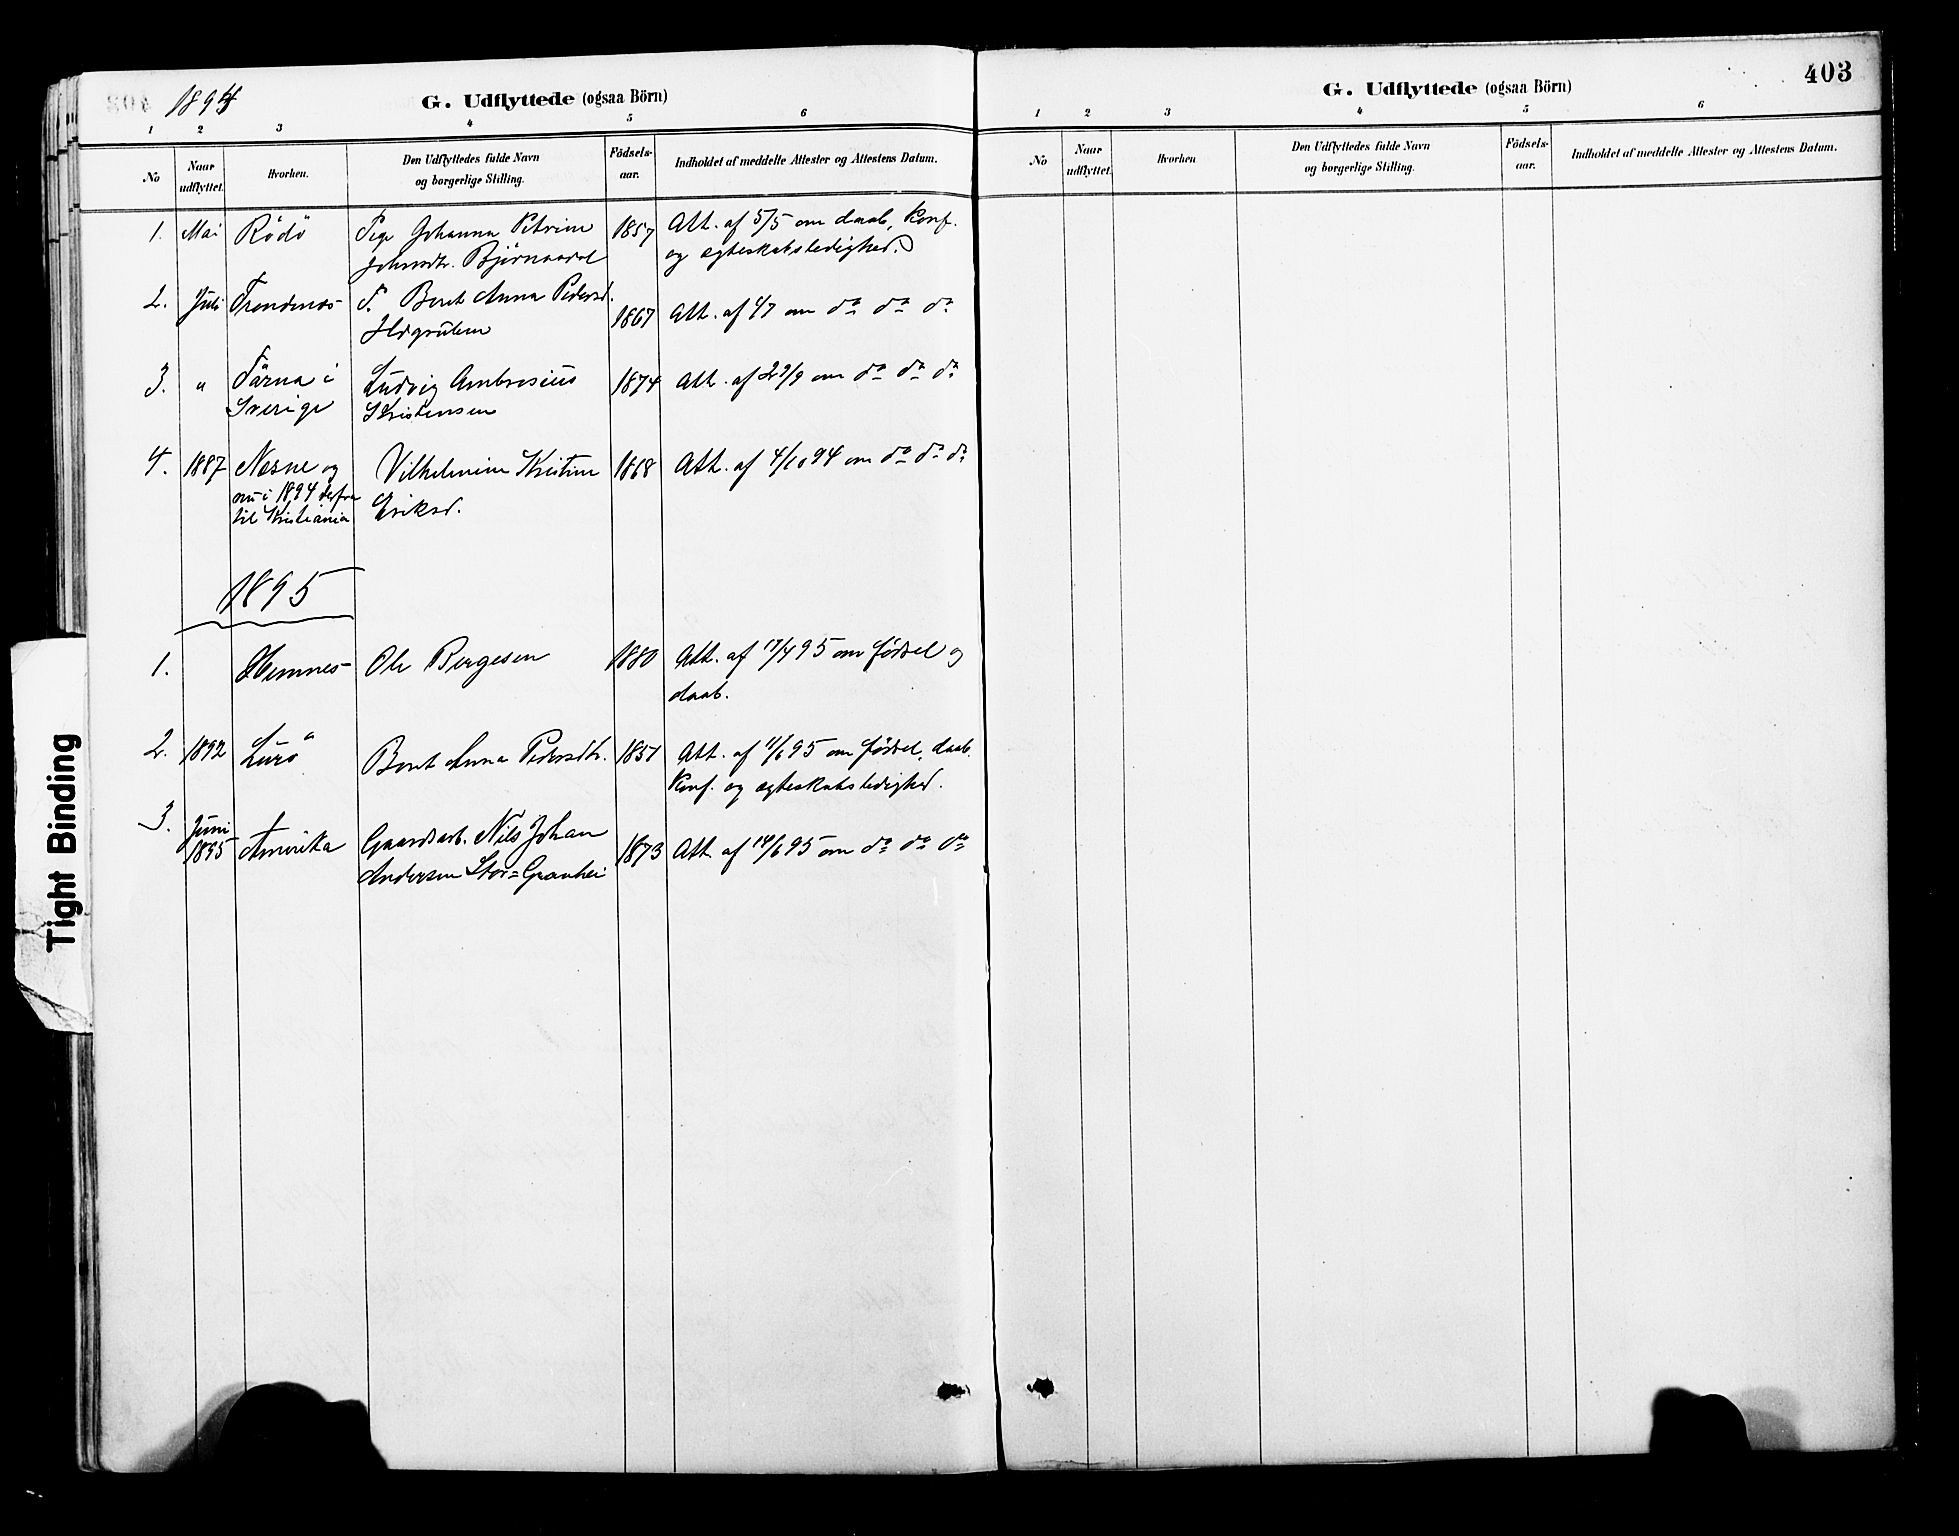 1894
G. Udflyttede (ogsaa Börn)
1 2 3 4 5 6
No
Naar udflyttet.
Hvorhen.
Den Udflyttedes fulde Navn og borgerlige Stilling.
Födsels-aar.
Indholdet af meddelte Attester og Attestens Datum.
1. Mai Rödö Pige Johanna Petrine 1857 Att. af 5/5 om daab, Konf.
Johnsdtr. Björnaadal og ægteskabsledighed.
2. Juli Trondenæs P. Beret Anna Pedersd.
1867 Att. af 1/7 om do do do
3. " Tärna i Ludvig Ambrosius 1874 Att. af 29/9 om do do do
Sverige Kristensen
4. 1887 Nesne og Vilhelmine Kristine 1868 Att. af 4/10 94 om do do do
nu i 1894 derfra Eriksd.
til Kristiania
1895
1. Hemnes Ole Bergesen 1880 Att. af 17/4 95 om födsel og
daab.
2. 1892 Lurö Beret Anna Pedersdtr. 1851 Att. af 11/6 95 om födsel, daab.
Konf. og ægteskabsledighed.
3. Juni
1895 Amerika Gaardsarb. Nils Johan 1873 Att. af 14/6 95 om do do do
Andersen Stor=Granhei
Tight Binding
403
G. Udflyttede (ogsaa Börn)
1 2 3 4 5 6
No
Naar udflyttet.
Hvorhen
Den Udflyttedes fulde Navn og borgerlige Stilling.
Födsels-aar.
Indholdet af meddelte Attester og Attestens Datum.